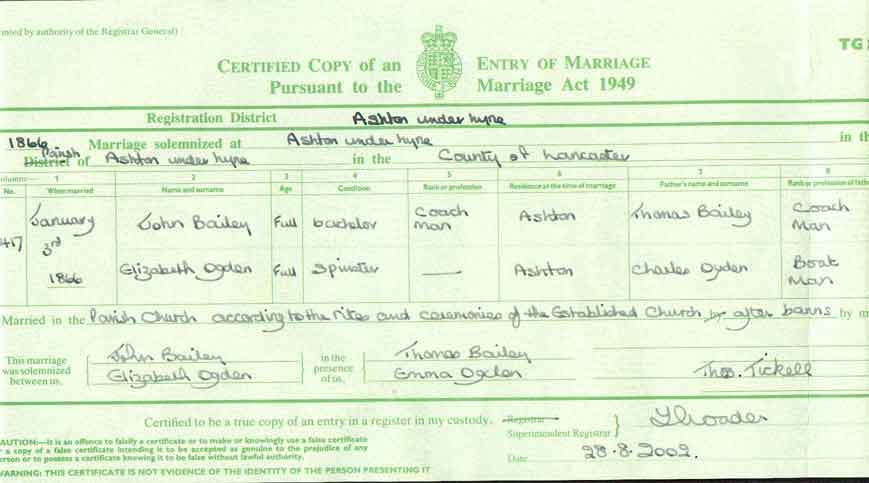 nted by authority of the Registrar General)
CERTIFIED COPY of an ENTRY OF MARRIAGE
Pursuant to the Marriage Act 1949
TG
Registration District Ashton under Lyne
1866 Marriage solemnized at Ashton under Lyne in th
Parish
District of Ashton under Lyne in the County of Lancaster
olumns:— 1 2 3 4 5 6 7 8
No. When married Name and surname Age Condition Rank or profession Residence at the time of marriage Father's name and surname Rank or profession of fathe
417 January 3rd 1866 John Bailey Full bachelor Coach Man Ashton Thomas Bailey Coach Man
Elizabeth Ogden Full Spinster — Ashton Charles Ogden Boat Man
Married in the Parish Church according to the rites and ceremonies of the Established Church by after banns by m
This marriage was solemnized between us, John Bailey in the presence of us, Thomas Bailey
Elizabeth Ogden Emma Ogden Thos. Tickell
Certified to be a true copy of an entry in a register in my custody. Registrar
Superintendent Registrar
Date 28.8.2002.
AUTION:—It is an offence to falsify a certificate or to make or knowingly use a false certificate
r a copy of a false certificate intending it to be accepted as genuine to the prejudice of any
erson or to possess a certificate knowing it to be false without lawful authority.
WARNING: THIS CERTIFICATE IS NOT EVIDENCE OF THE IDENTITY OF THE PERSON PRESENTING IT